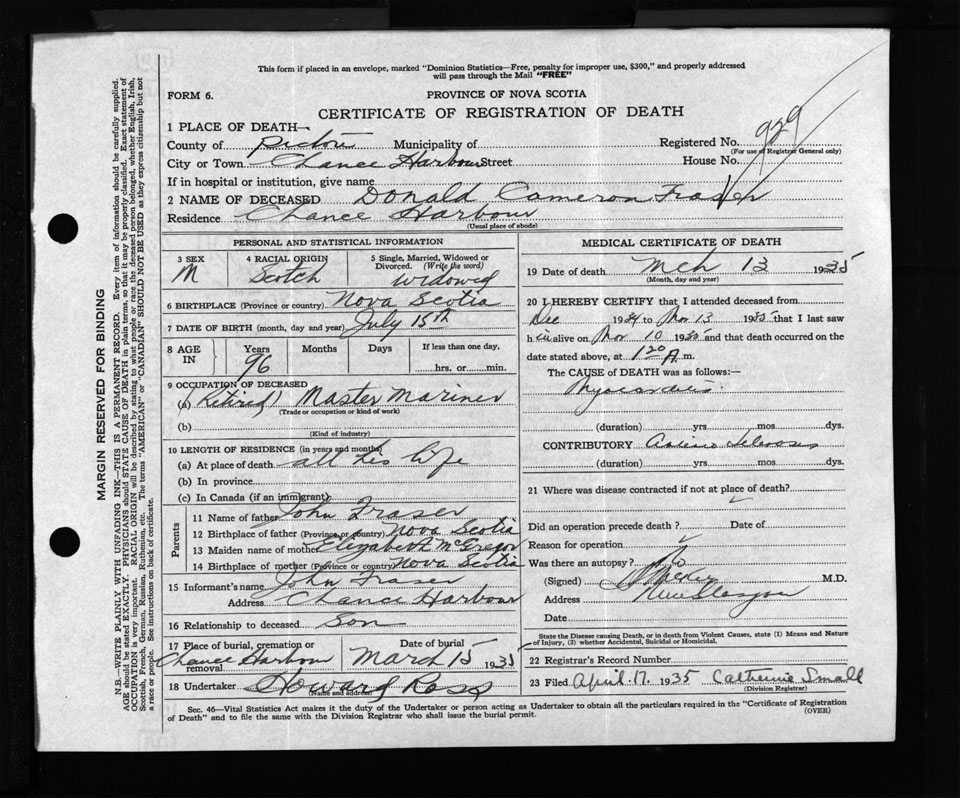 This form if placed in an envelope, marked "Dominion Statistics—Free, penalty for improper use, $300," and properly addressed
will pass through the Mail "FREE"
FORM 6. PROVINCE OF NOVA SCOTIA
CERTIFICATE OF REGISTRATION OF DEATH
1 PLACE OF DEATH—
County of Pictou Municipality of Registered No. 929
(For use of Registrar General only)
City or Town Chance Harbour Street House No.
If in hospital or institution, give name
2 NAME OF DECEASED Donald Cameron Fraser
Residence Chance Harbour
(Usual place of abode)
PERSONAL AND STATISTICAL INFORMATION
3 SEX 4 RACIAL ORIGIN 5 Single, Married, Widowed or
Divorced. (Write the word)
M Scotch widowed
6 BIRTHPLACE (Province or country) Nova Scotia
7 DATE OF BIRTH (month, day and year) July 15th
8 AGE IN Years Months Days If less than one day,
96 hrs. or min.
9 OCCUPATION OF DECEASED
(a) (Retired) Master Mariner
(Trade or occupation or kind of work)
(b)
(Kind of industry)
10 LENGTH OF RESIDENCE (in years and months)
(a) At place of death all his life
(b) In province
(c) In Canada (if an immigrant)
Parents
11 Name of father John Fraser
12 Birthplace of father (Province or country) Nova Scotia
13 Maiden name of mother Elizabeth McGregor
14 Birthplace of mother (Province or country) Nova Scotia
15 Informant's name John Fraser
Address Chance Harbour
16 Relationship to deceased son
17 Place of burial, cremation or removal Date of burial
Chance Harbour March 15 1935
18 Undertaker Howard Ross
(Name and address)
MEDICAL CERTIFICATE OF DEATH
19 Date of death Mch 13 1935
(Month, day and year)
20 I HEREBY CERTIFY that I attended deceased from
Dec 1934 to Mar 13 1935 that I last saw
h im alive on Mar 10 1935 and that death occurred on the
date stated above, at 1 20 A. m.
The CAUSE of DEATH was as follows:—
Myocarditis
(duration) yrs mos dys.
CONTRIBUTORY
(duration) yrs. mos dys.
21 Where was disease contracted if not at place of death?
Did an operation precede death? Date of
Reason for operation
Was there an autopsy? No
(Signed) M.D.
Address New Glasgow
Date
State the Disease causing Death, or in death from Violent Causes, state (1) Means and Nature
of Injury, (2) whether Accidental, Suicidal or Homicidal.
22 Registrar's Record Number
23 Filed April 17. 1935 Catherine Small
(Division Registrar)
Sec. 46—Vital Statistics Act makes it the duty of the Undertaker or person acting as Undertaker to obtain all the particulars required in the "Certificate of Registration
of Death" and to file the same with the Division Registrar who shall issue the burial permit. (OVER)
MARGIN RESERVED FOR BINDING
N.B.—WRITE PLAINLY WITH UNFADING INK—THIS IS A PERMANENT RECORD. Every item of information should be carefully supplied.
AGE should be stated EXACTLY. PHYSICIANS should STATE CAUSE OF DEATH in plain terms, so that it may be properly classified. Exact statement of
OCCUPATION is very important. RACIAL ORIGIN will be described by stating to what people or race the deceased person belonged, whether English, Irish,
Scottish, French, German, Russian, Ruthenian, etc. The terms "AMERICAN" or "CANADIAN" SHOULD NOT BE USED as they express citizenship but not
a race or people. See instructions on back of certificate.